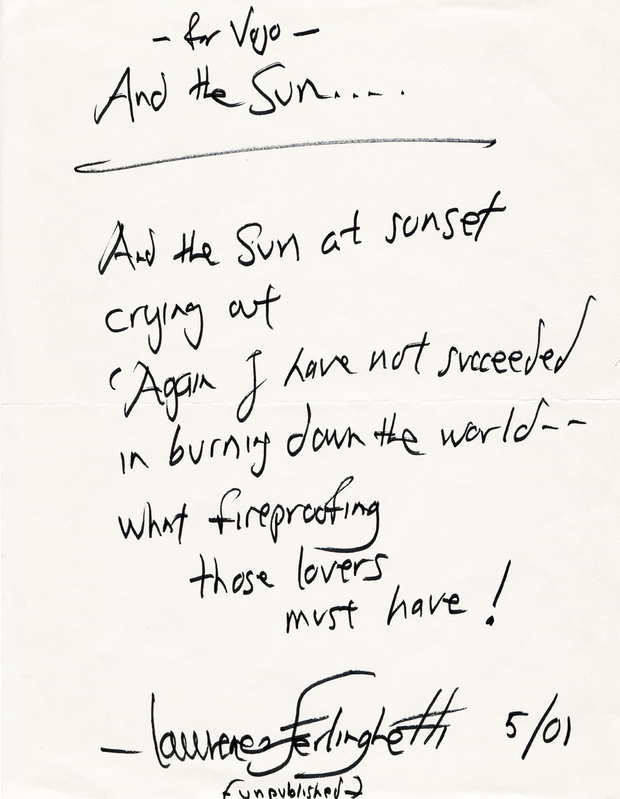 - for Vojo -
And the Sun.....
And the Sun at sunset
crying out
'Again I have not succeeded
in burning down the world--
what fireproofing
those lovers
must have!
— Lawrence Ferlinghetti 5/01
(unpublished)